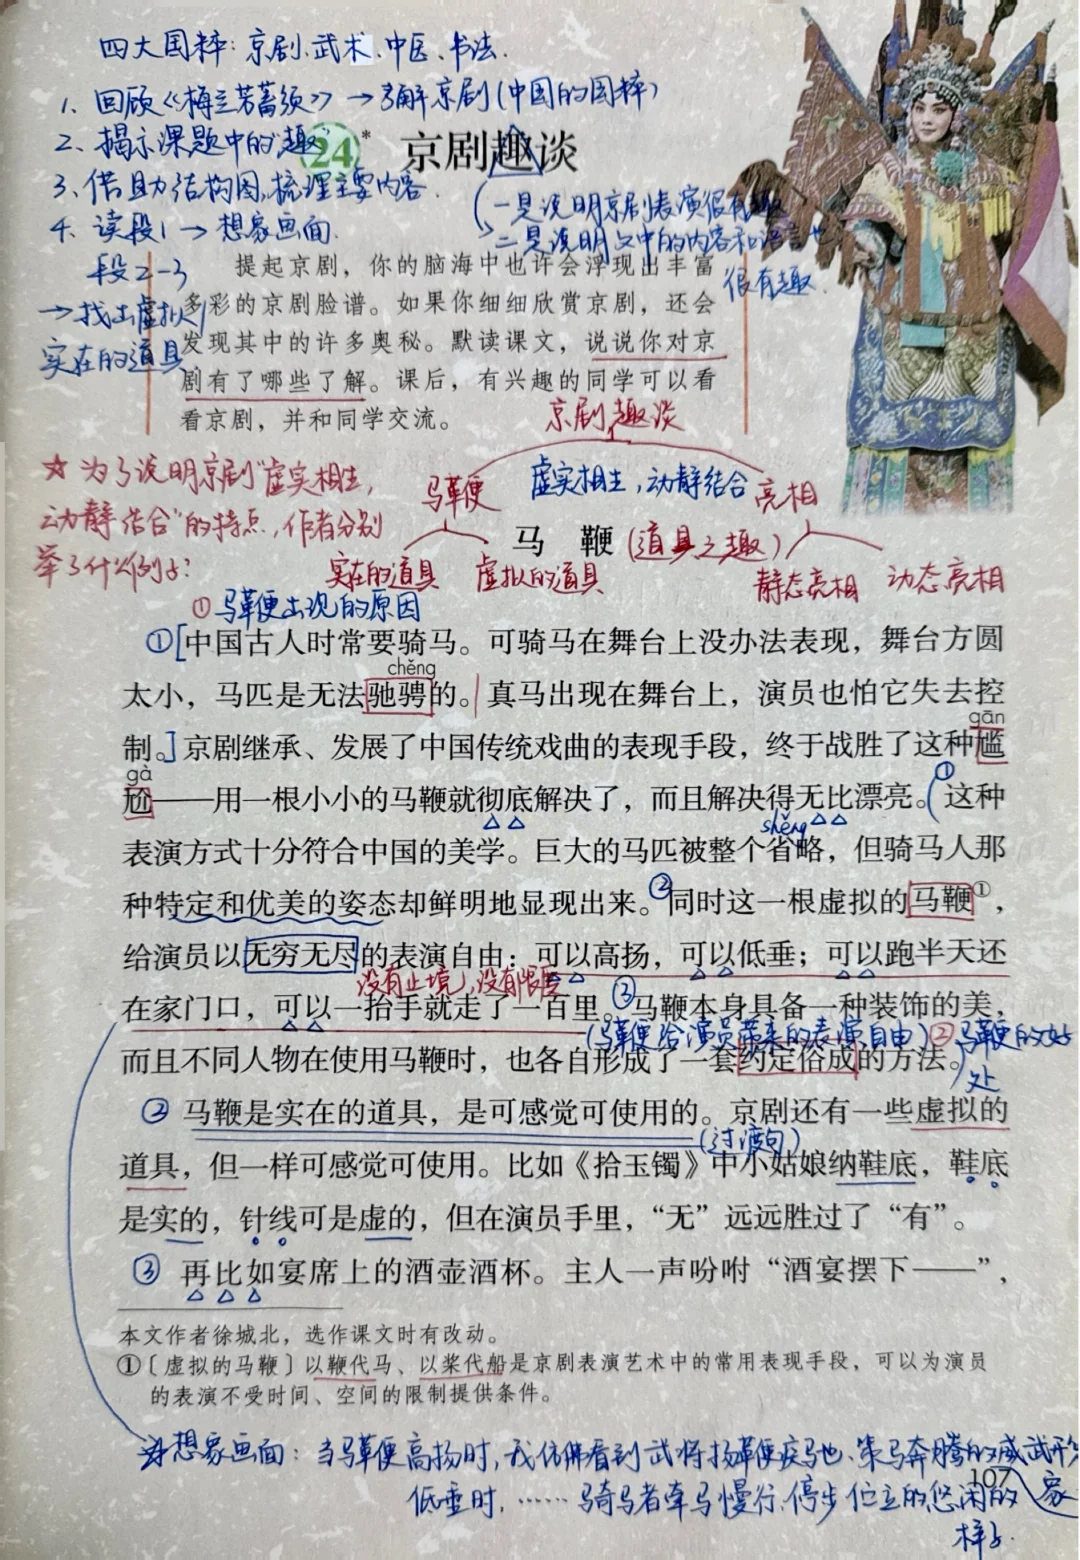 四大国粹：京剧、武术、中医、书法.
1. 回顾《梅兰芳蓄须》→了解京剧(中国的国粹)
2、揭示课题中的"趣"
24* 京剧趣谈
3、借助结构图,梳理主要内容.
一是说明京剧表演很有趣
4. 读段1→想象画面.
二是说明文中的内容和语言也
很有趣.
段2-3
→找出虚拟/
实在的道具
提起京剧，你的脑海中也许会浮现出丰富
多彩的京剧脸谱。如果你细细欣赏京剧，还会
发现其中的许多奥秘。默读课文，说说你对京
剧有了哪些了解。课后，有兴趣的同学可以看
看京剧，并和同学交流。
京剧趣谈
☆为了说明京剧"虚实相生，
动静结合"的特点,作者分别
举了什么例子?
马鞭
虚实相生,动静结合
亮相
马 鞭
(道具之趣)
实在的道具
虚拟的道具
静态亮相
动态亮相
①马鞭出现的原因
①[中国古人时常要骑马。可骑马在舞台上没办法表现，舞台方圆
chěng
太小，马匹是无法驰骋的。真马出现在舞台上，演员也怕它失去控
gān
制。]京剧继承、发展了中国传统戏曲的表现手段，终于战胜了这种尴
gà
尬——用一根小小的马鞭就彻底解决了，而且解决得无比漂亮。(①这种
shěng
表演方式十分符合中国的美学。巨大的马匹被整个省略，但骑马人那
种特定和优美的姿态却鲜明地显现出来。②同时这一根虚拟的马鞭①，
给演员以无穷无尽的表演自由：可以高扬，可以低垂；可以跑半天还
没有止境,没有限度
在家门口，可以一抬手就走了一百里。③马鞭本身具备一种装饰的美，
(马鞭给演员带来的表演自由)②马鞭的好处
而且不同人物在使用马鞭时，也各自形成了一套约定俗成的方法。)
②马鞭是实在的道具，是可感觉可使用的。京剧还有一些虚拟的
(过渡句)
道具，但一样可感觉可使用。比如《拾玉镯》中小姑娘纳鞋底，鞋底
是实的，针线可是虚的，但在演员手里，“无”远远胜过了“有”。
③再比如宴席上的酒壶酒杯。主人一声吩咐“酒宴摆下——”，
本文作者徐城北，选作课文时有改动。
①〔虚拟的马鞭〕以鞭代马、以桨代船是京剧表演艺术中的常用表现手段，可以为演员
的表演不受时间、空间的限制提供条件。
☆想象画面：当马鞭高扬时,我仿佛看到武将扬鞭疾马也、策马奔腾的威武形象
107
低垂时,……骑马者牵马慢行、停步伫立的悠闲的
样子.